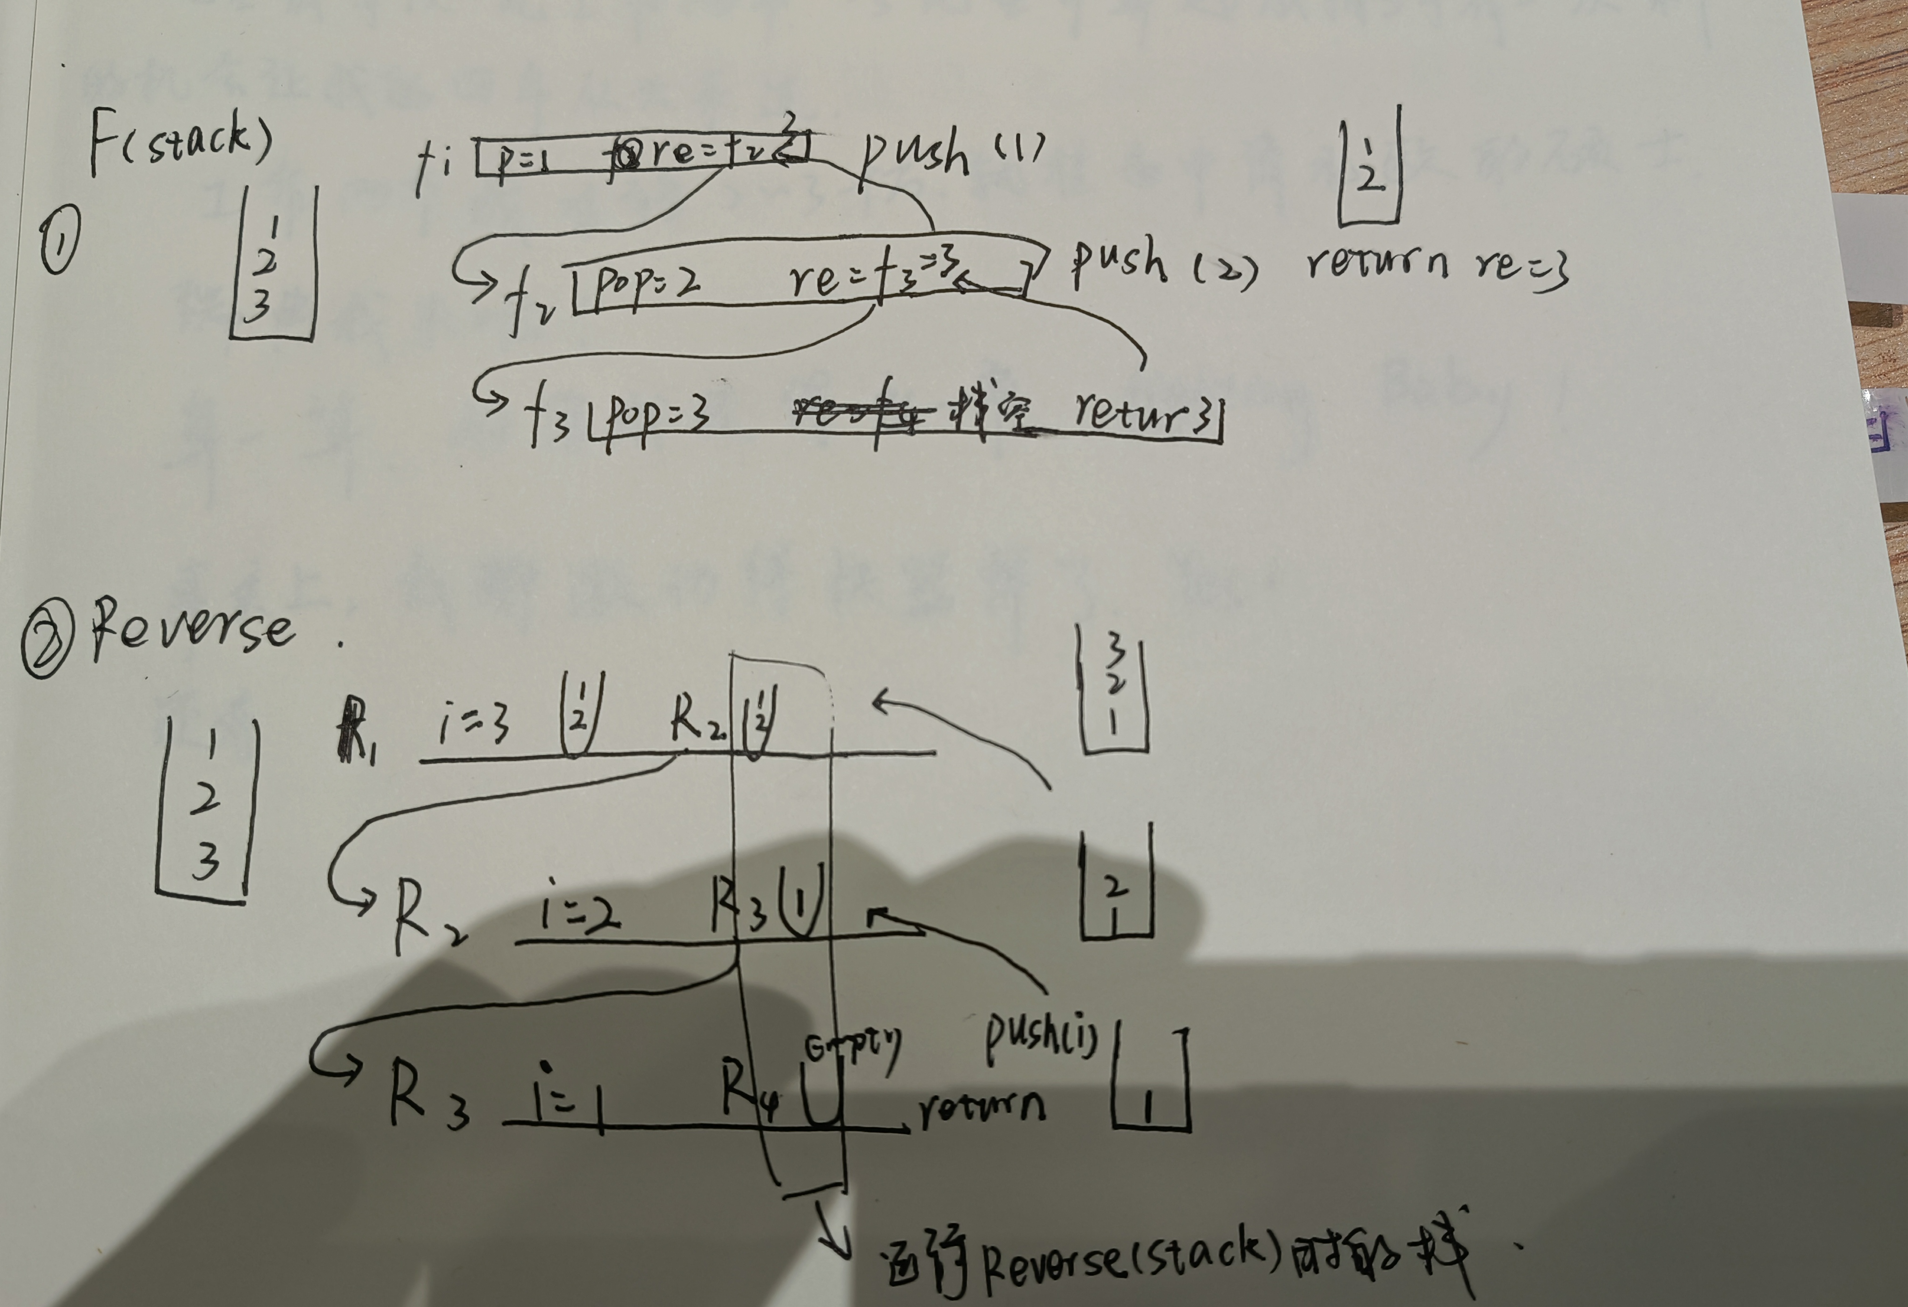 F(stack)
f1 p=1 re=f2 3 push(1)
1
2
①
1
2
3
f2 pop=2 re=f3=3 push(2) return re=3
f3 pop=3 栈空 retur3
② Reverse.
3
2
1
R1 i=3 1 2 R2 1 2
1
2
3
2
1
R2 i=2 R3 1
Empty push(i)
R3 i=1 R4 return 1
运行Reverse(stack)时的栈.